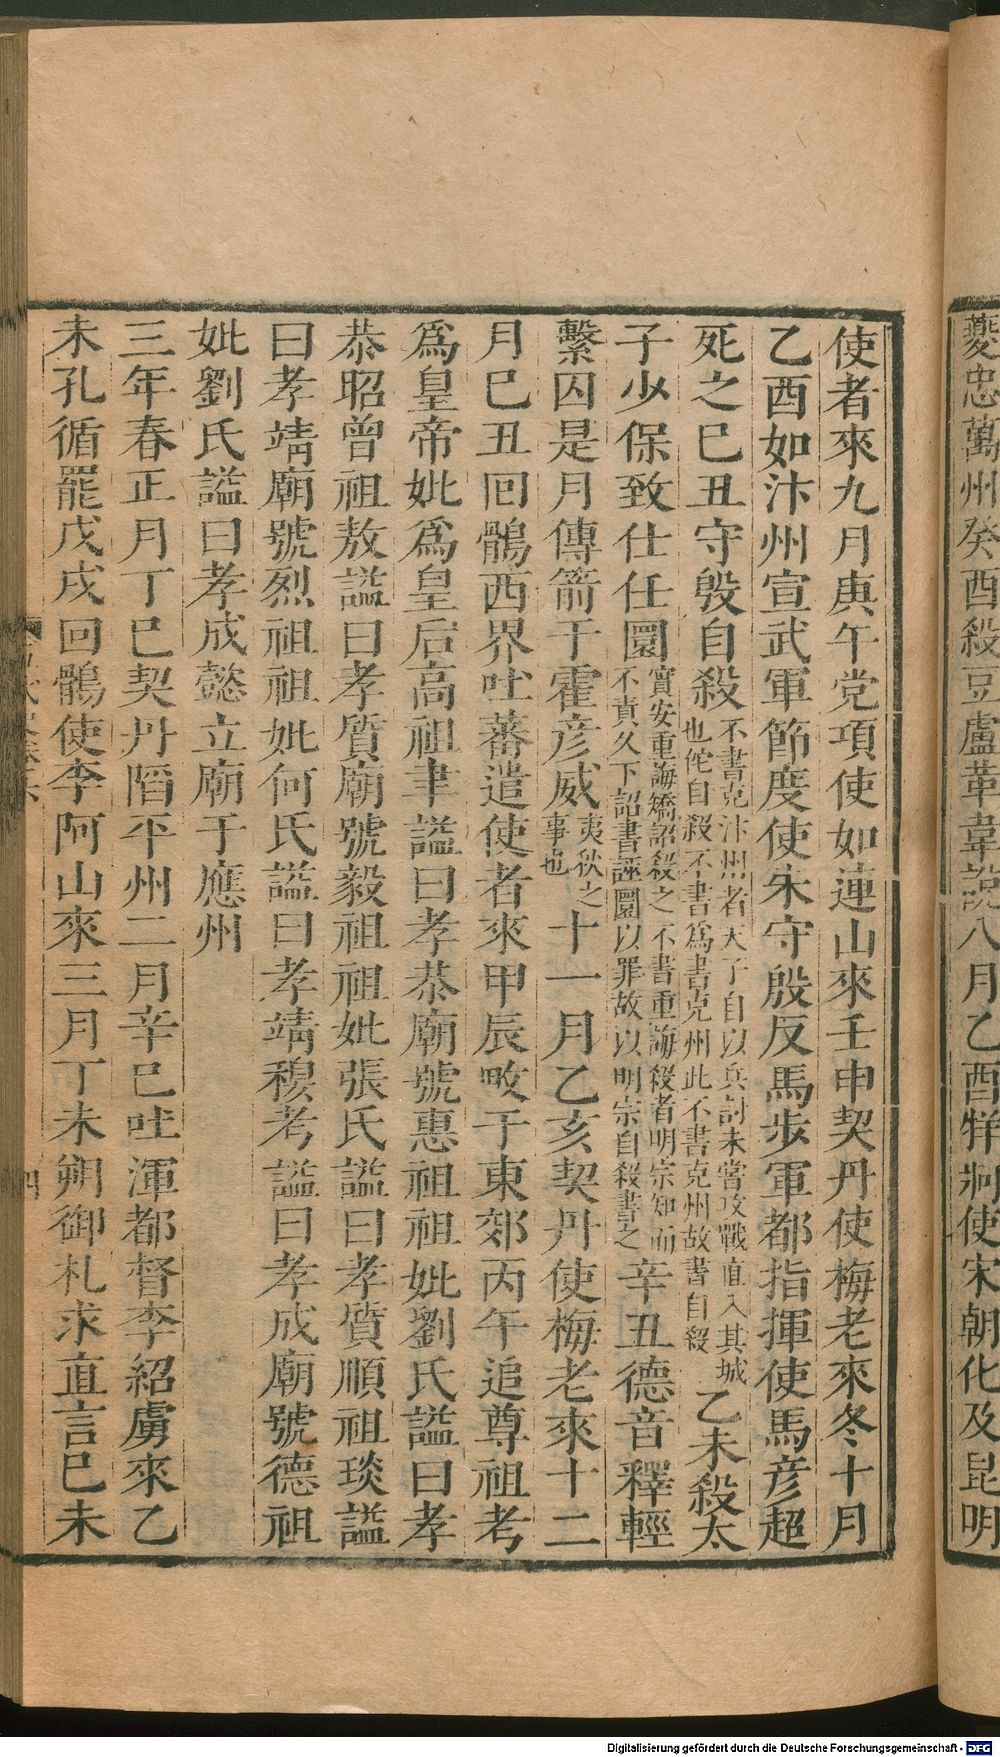 夔忠萬州癸酉殺豆盧革韋説八月乙酉牂牁使宋朝化及昆明
使者來九月庚午党項使如連山來壬申契丹使梅老來冬十月
乙酉如汴州宣武軍節度使朱守殷反馬步軍都指揮使馬彦超
死之巳丑守殷自殺不書克汴州者天子自以兵討未嘗攻戰直入其城也佗自殺不書爲書克州此不書克州故書自殺乙未殺太
子少保致仕任圜實安重誨矯詔殺之不書重誨殺者明宗知而不責久下詔書誣圜以罪故以明宗自殺書之辛丑德音釋輕
繫囚是月傳箭于霍彦威夷狄之事也十一月乙亥契丹使梅老來十二
月巳丑回鶻西界吐蕃遣使者來甲辰畋于東郊丙午追尊祖考
爲皇帝妣爲皇后高祖聿謚曰孝恭廟號惠祖祖妣劉氏謚曰孝
恭昭曾祖敖謚曰孝質廟號毅祖祖妣張氏謚曰孝質順祖琰謚
曰孝靖廟號烈祖祖妣何氏謚曰孝靖穆考謚曰孝成廟號德祖
妣劉氏謚曰孝成懿立廟于應州
三年春正月丁巳契丹陷平州二月辛巳吐渾都督李紹虜來乙
未孔循罷戊戌回鶻使李阿山來三月丁未朔御札求直言巳未
四
Digitalisierung gefördert durch die Deutsche Forschungsgemeinschaft - DFG